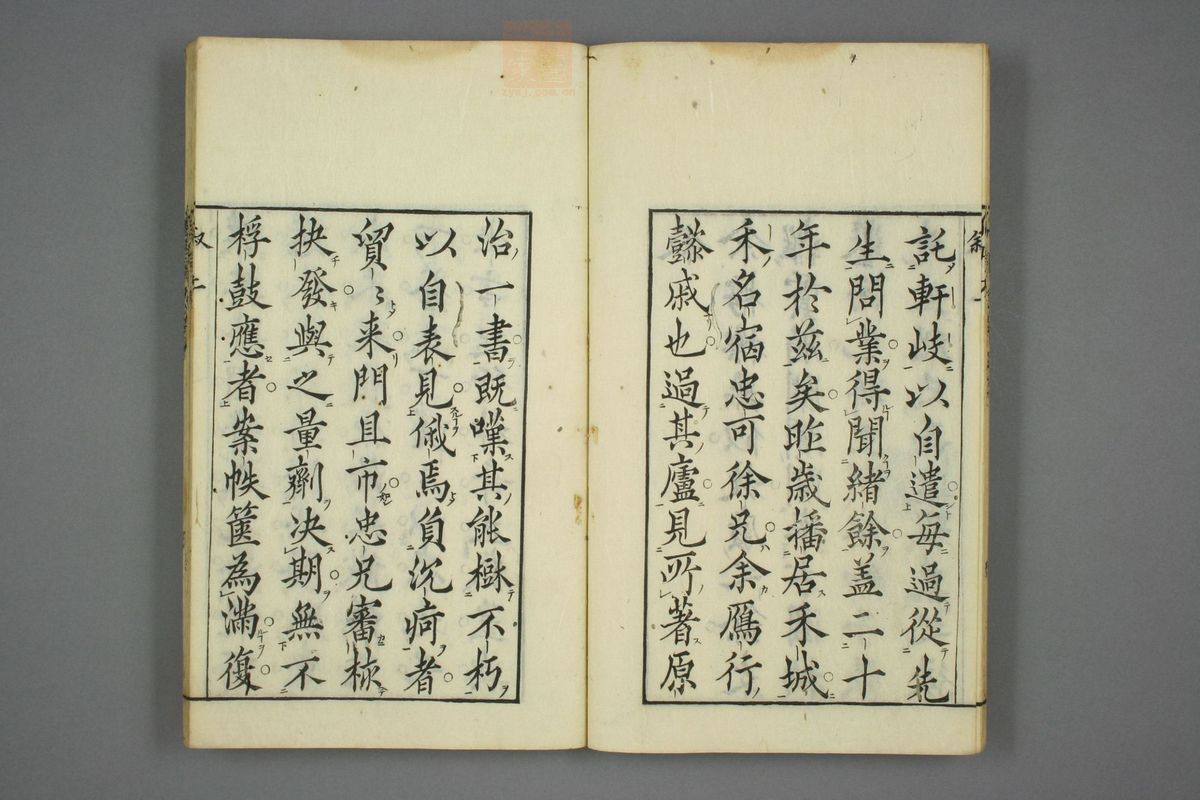 託軒岐以自遣每過從先
生問業得聞緒餘盖二十
年於兹矣昨歲播居禾城
禾名宿忠可徐兄余鴈行
懿戚也過其廬見所著原
治一書既嘆其能樹不朽
以自表見俄焉負沉疴者
貿〻来門且市忠兄審核
抉發與之量劑决期無不
桴鼓應者案帙箧為滿復
zysj.com.cn